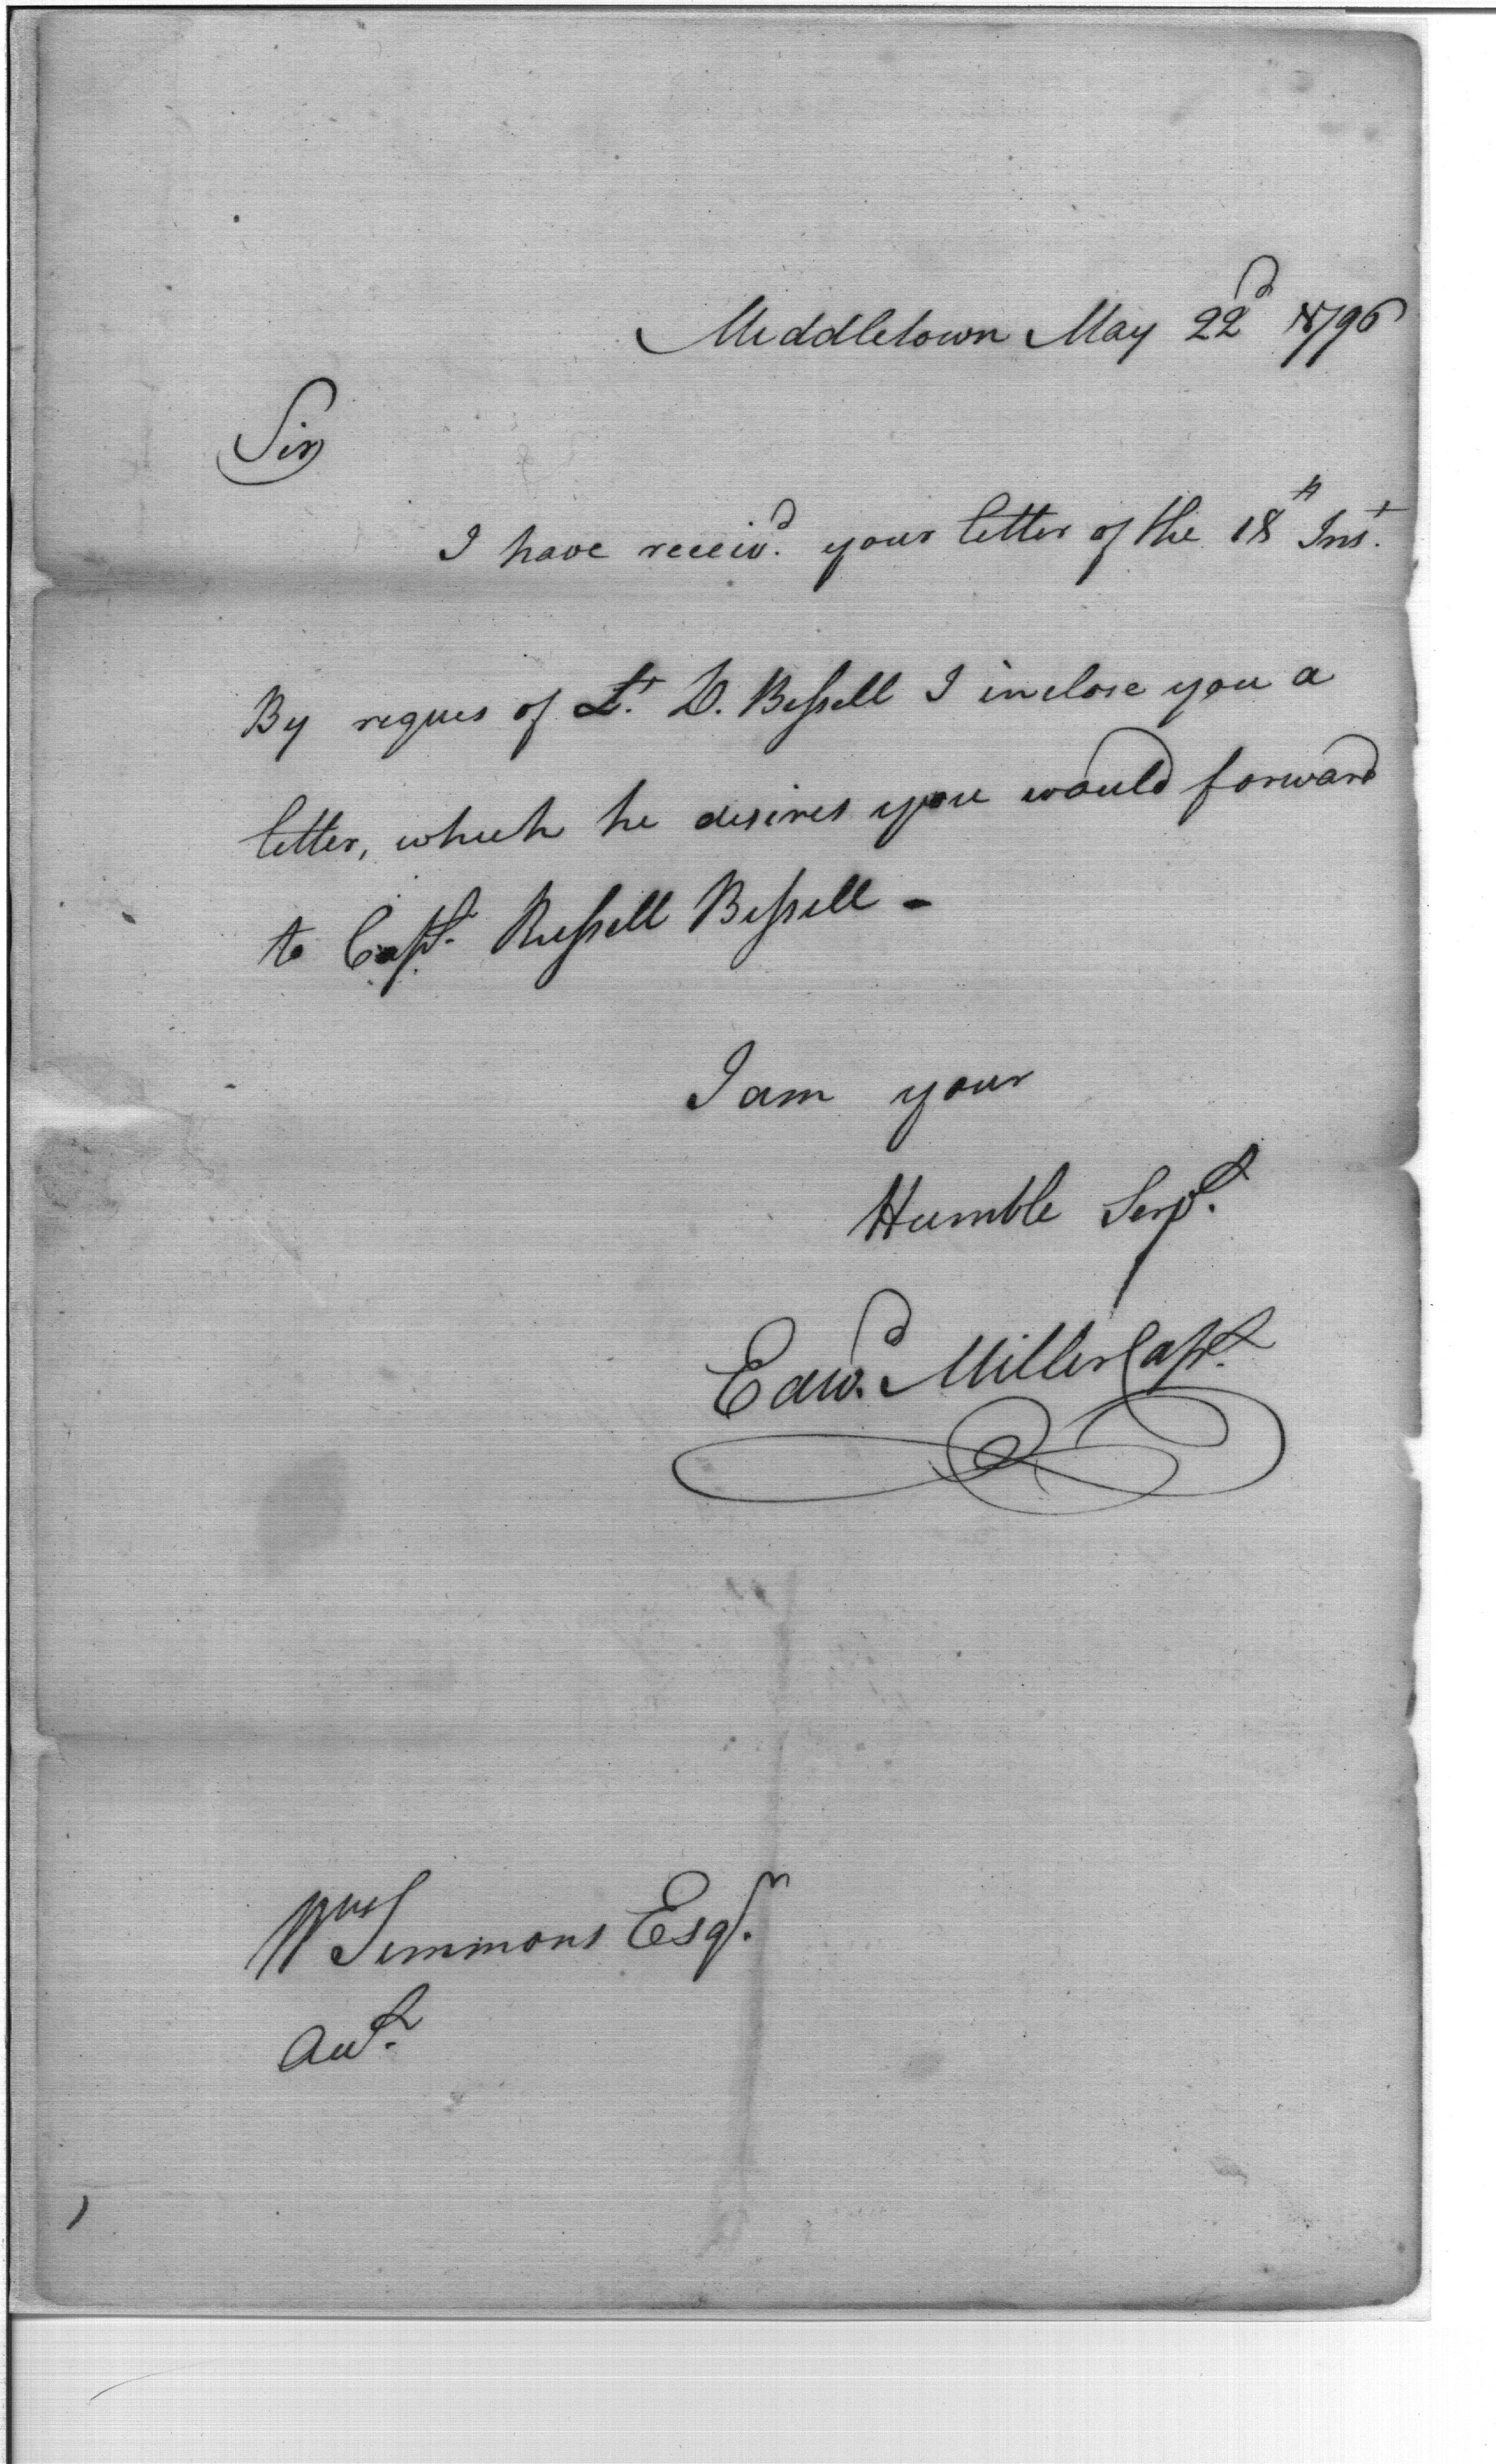 Middletown May 22d 1796
Sir
I have receiv.d your letter of the 18th Inst.
By reques of Lt. D. Bissell I inclose you a
letter, which he desires you would forward
to Capt. Russell Bissell -
I am your
Humble Servt.
Edwd. Miller Capt.
Wm Simmons Esqr.
Act.